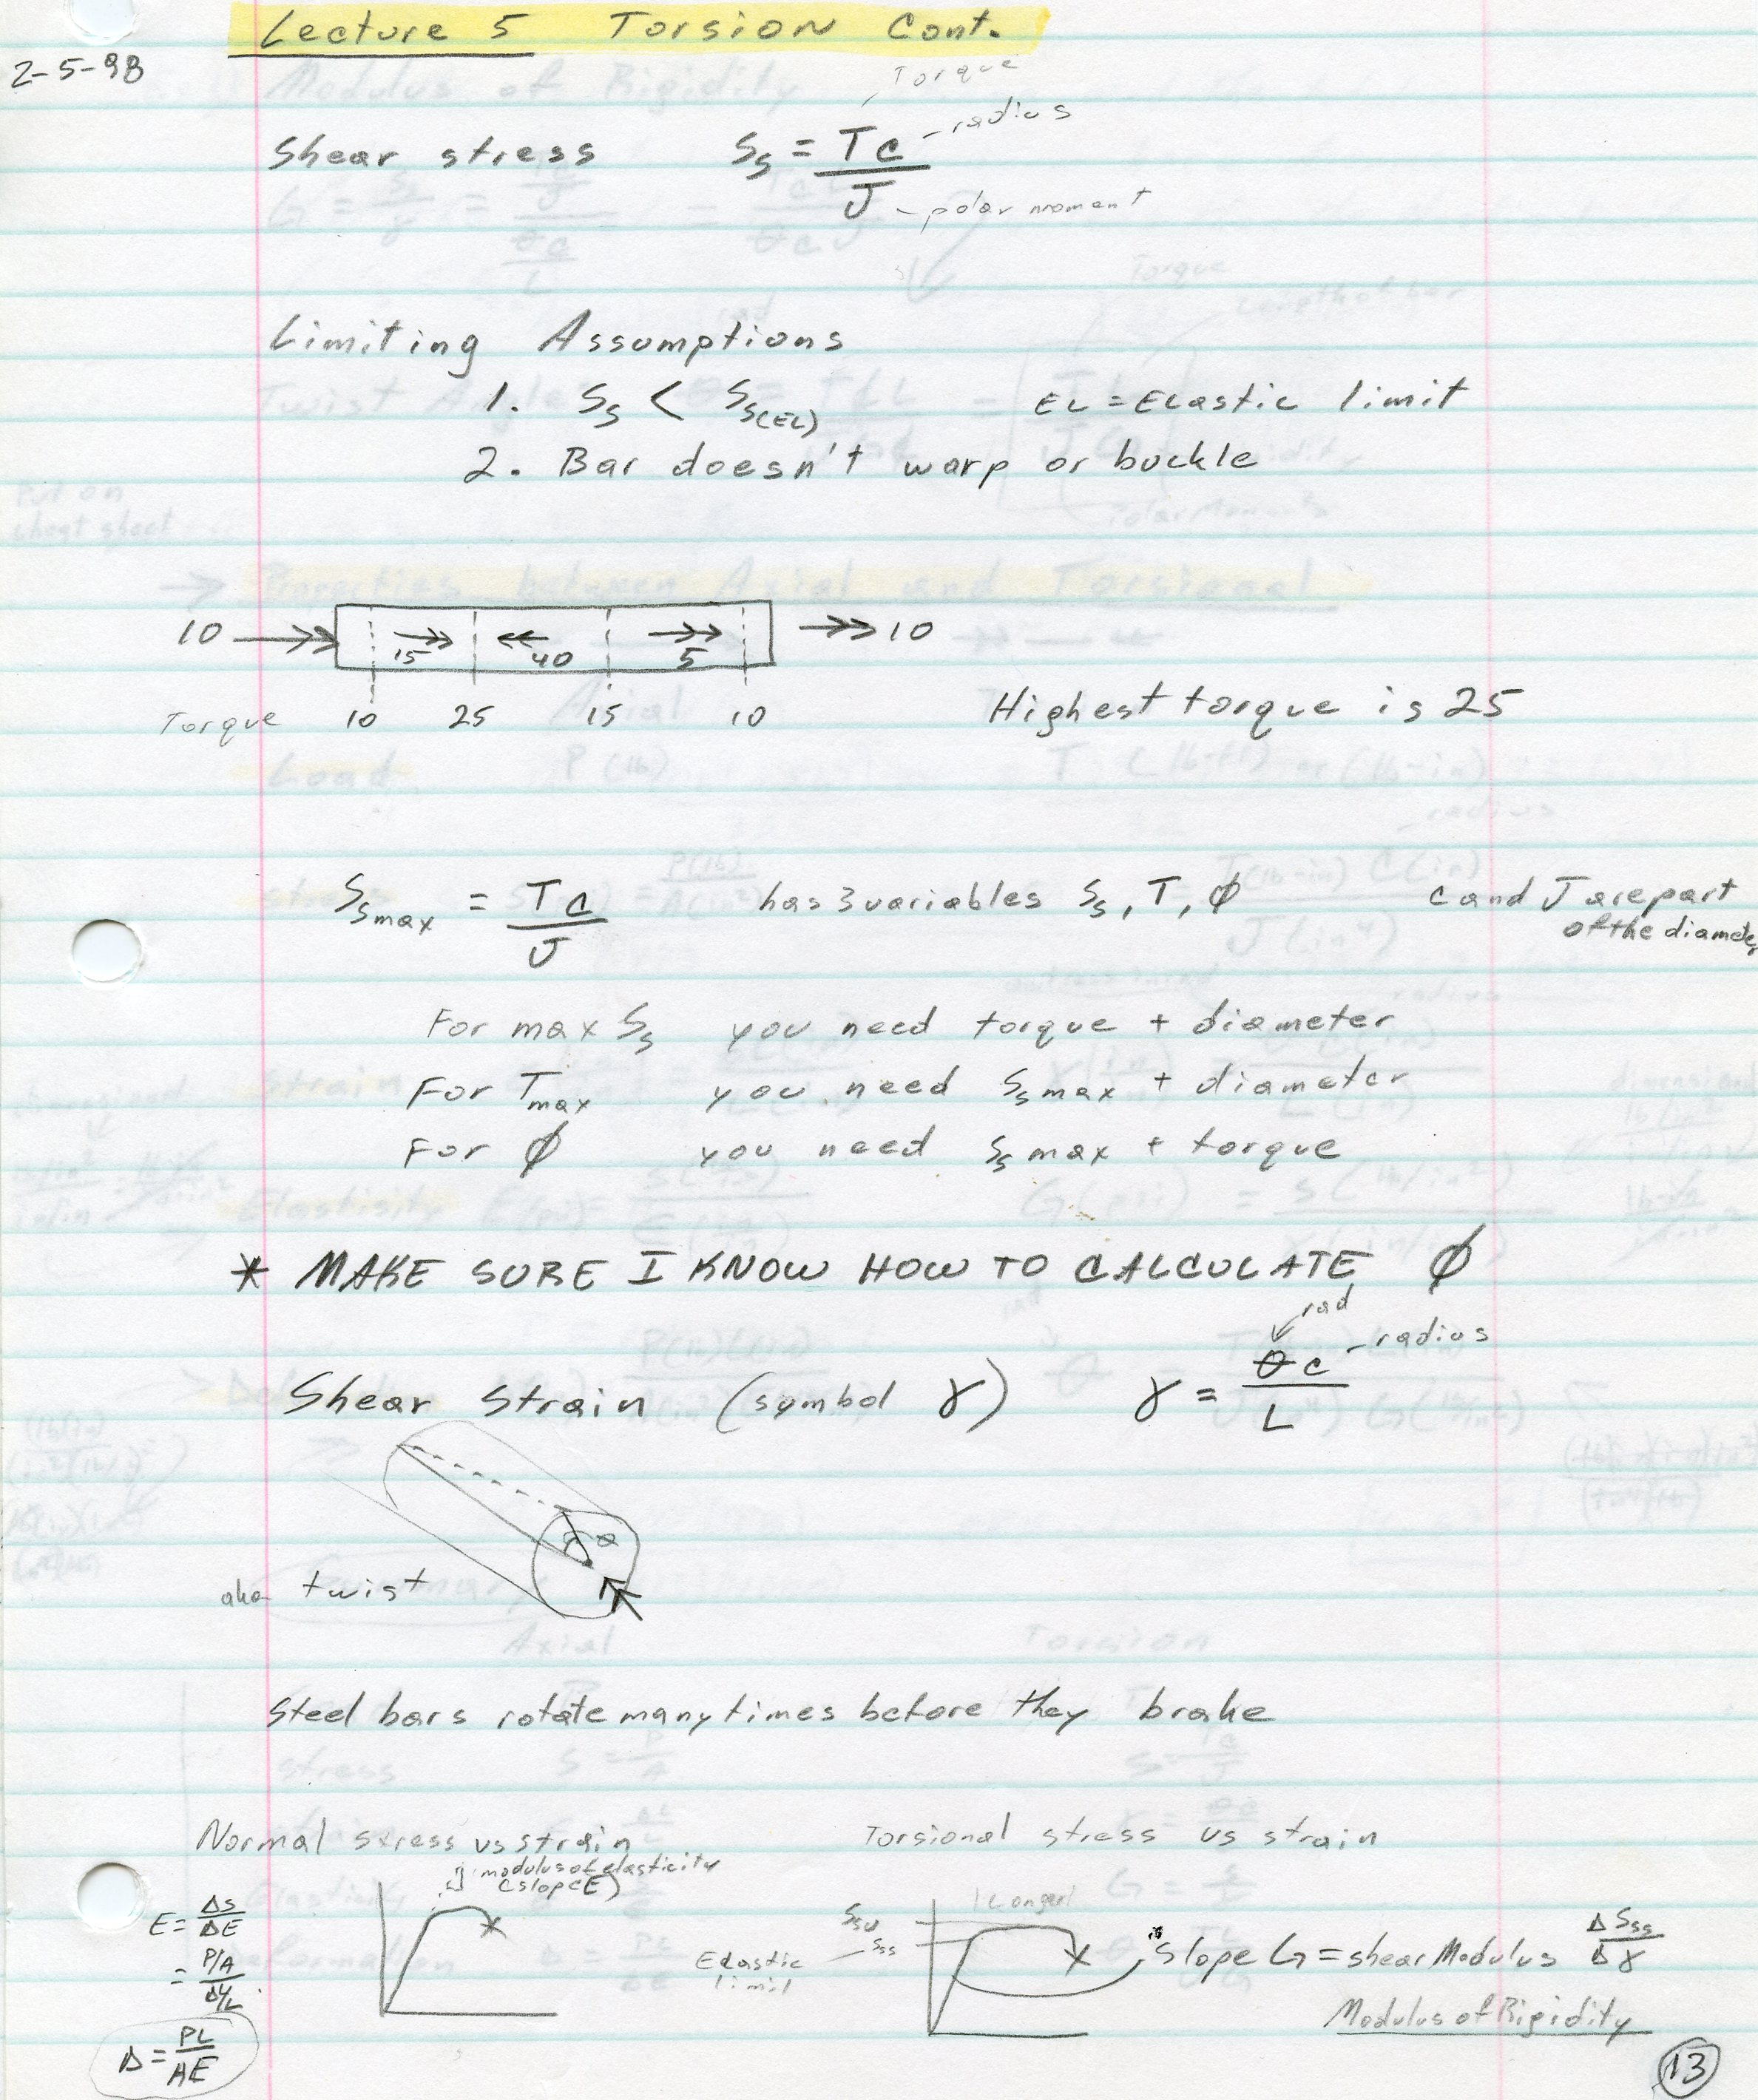 Lecture 5 Torsion Cont.
2-5-98
Torque
Shear stress Ss = Tc / J - radius
- polar moment
Limiting Assumptions
1. Ss < Ss(EL) EL = Elastic limit
2. Bar doesn't warp or buckle
10 15 40 5 10
Torque 10 25 15 10
Highest torque is 25
Ssmax = Tc / J has 3 variables Ss, T, ϕ c and J are part
of the diameter
For max Ss you need torque + diameter
For Tmax you need Ss max + diameter
For ϕ you need Ss max + torque
* MAKE SURE I KNOW HOW TO CALCULATE ϕ
rad
Shear Strain (symbol γ) γ = θc / L - radius
θ
aka twist
Steel bars rotate many times before they brake
Normal stress vs strain Torsional stress vs strain
modulus of elasticity
(slope E)
E = ΔS / ΔE
= P/A / Δ/L
Δ = PL / AE
(Longer)
Ssu
Sss
Elastic
limit
Slope G = shear Modulus ΔSss / Δγ
Modulus of Rigidity
13